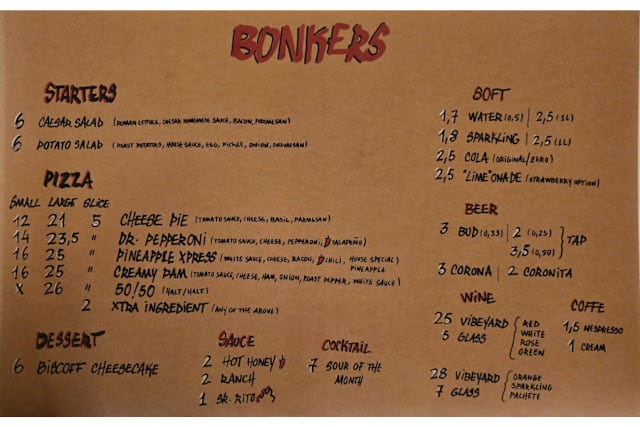 BONKERS
STARTERS
6 CAESAR SALAD (ROMAN LETTUCE, CAESAR HOMEMADE SAUCE, BACON, PARMESAN)
6 POTATO SALAD (ROAST POTATOES, HOUSE SAUCE, EGG, PICKLE, ONION, PARMESAN)
PIZZA
SMALL LARGE SLICE
12 21 5 CHEESE PIE (TOMATO SAUCE, CHEESE, BASIL, PARMESAN)
14 23,5 " DR. PEPPERONI (TOMATO SAUCE, CHEESE, PEPPERONI, JALAPEÑO)
16 25 " PINEAPPLE XPRESS (WHITE SAUCE, CHEESE, BACON, CHILI, HOUSE SPECIAL
PINEAPPLE
16 25 " CREAMY DAM (TOMATO SAUCE, CHEESE, HAM, ONION, ROAST PEPPER, WHITE SAUCE)
X 26 " 50/50 (HALF/HALF)
2 XTRA INGREDIENT (ANY OF THE ABOVE)
DESSERT
6 BISCOFF CHEESECAKE
SAUCE
2 HOT HONEY
2 RANCH
1 SR. RITO
COCKTAIL
7 SOUR OF THE
MONTH
SOFT
1,7 WATER (0,5) | 2,5 (1L)
1,8 SPARKLING | 2,5 (1L)
2,5 COLA (ORIGINAL/ZERO)
2,5 "LIME"ONADE (STRAWBERRY OPTION)
BEER
3 BUD (0,33) | 2 (0,25)
3,5 (0,50) TAP
3 CORONA | 2 CORONITA
WINE
25 VIBEYARD
5 GLASS
RED
WHITE
ROSE
GREEN
28 VIBEYARD
7 GLASS
ORANGE
SPARKLING
PALHETE
COFFE
1,5 NESPRESSO
1 CREAM